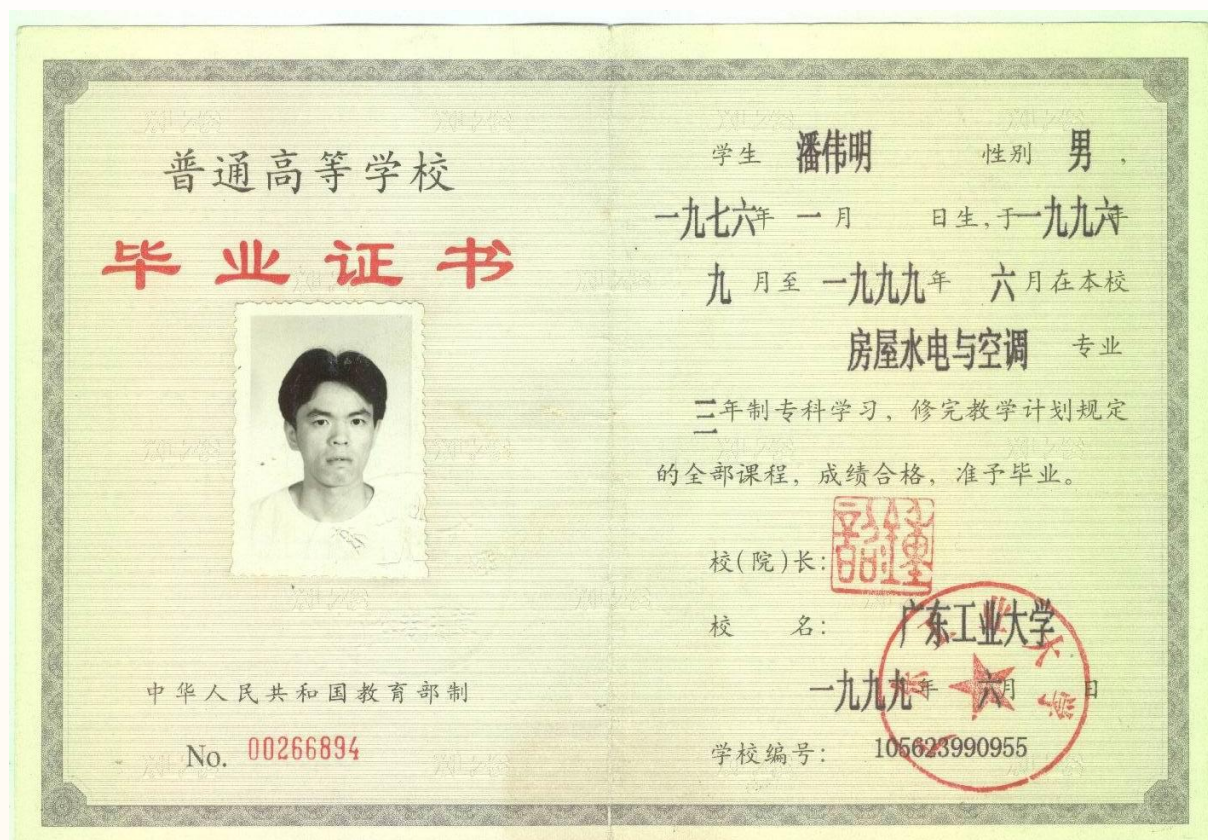 普通高等学校
毕业证书
中华人民共和国教育部制
No. 00266894
学生 潘伟明 性别 男，
一九七六年 一月 日生，于一九九六年
九月至 一九九九年 六月在本校
房屋水电与空调 专业
三年制专科学习，修完教学计划规定
的全部课程，成绩合格，准予毕业。
校(院)长：
校 名： 广东工业大学
一九九九年 六月 日
学校编号： 105623990955